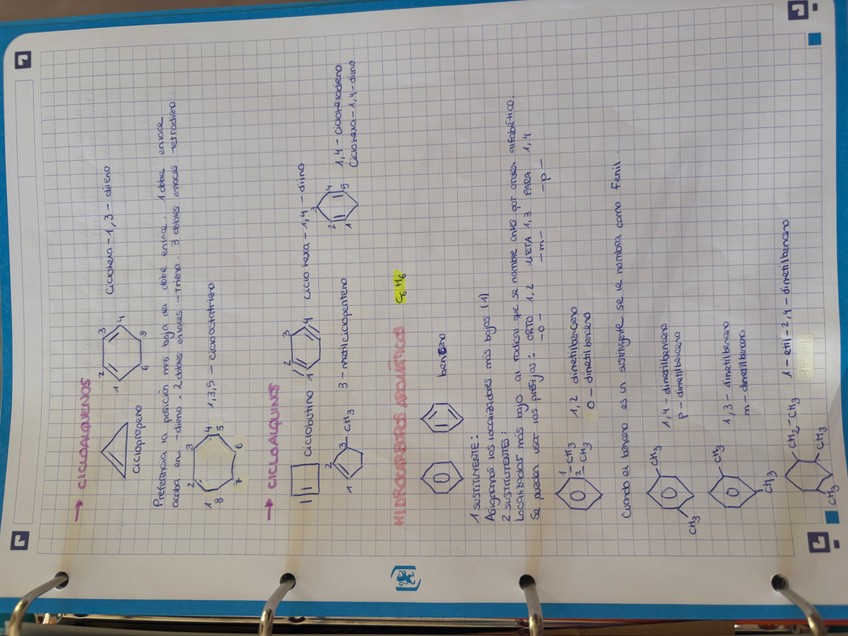 → CICLOALQUENOS
ciclopropeno
1 2 3 4 5 6
Ciclohexa-1,3-diieno
Preferencia la posición más baja del doble enlace. 1 doble enlace
acaba en -dieno. 2 dobles enlaces -trieno. 3 dobles enlaces -tetradieno
1 2 3 4 5 6 7 8
1,3,5 - ciclooctatrieno
→ CICLOALQUINOS
ciclobutino
1 2 3 4
ciclo hexa - 1,4 - diino
1 2 3 CH3
3 - metilciclopenteno
1 2 3 4 5
1,4 - ciclohexadieno
Ciclohexa-1,4-diino
HIDROCARBUROS AROMÁTICOS C6H6
benceno
1 SUSTITUYENTE:
Asignamos los localizadores más bajos (1)
2 SUSTITUYENTES:
Localizador más bajo al radical que se nombre antes por orden alfabético.
Se pueden usar los prefijos: ORTO 1,2 META 1,3 PARA 1,4
-o- -m- -p-
1 CH3
2 CH3
1,2 dimetilbenceno
o-dimetilbenceno
Cuando el benceno es un sustituyente, se le nombra como Fenil.
CH3
CH3
1,4-dimetilbenceno
p-dimetilbenceno
CH3
CH3
1,3-dimetilbenceno
m-dimetilbenceno
CH2-CH3
CH3
CH3
1-etil-2,4-dimetilbenceno